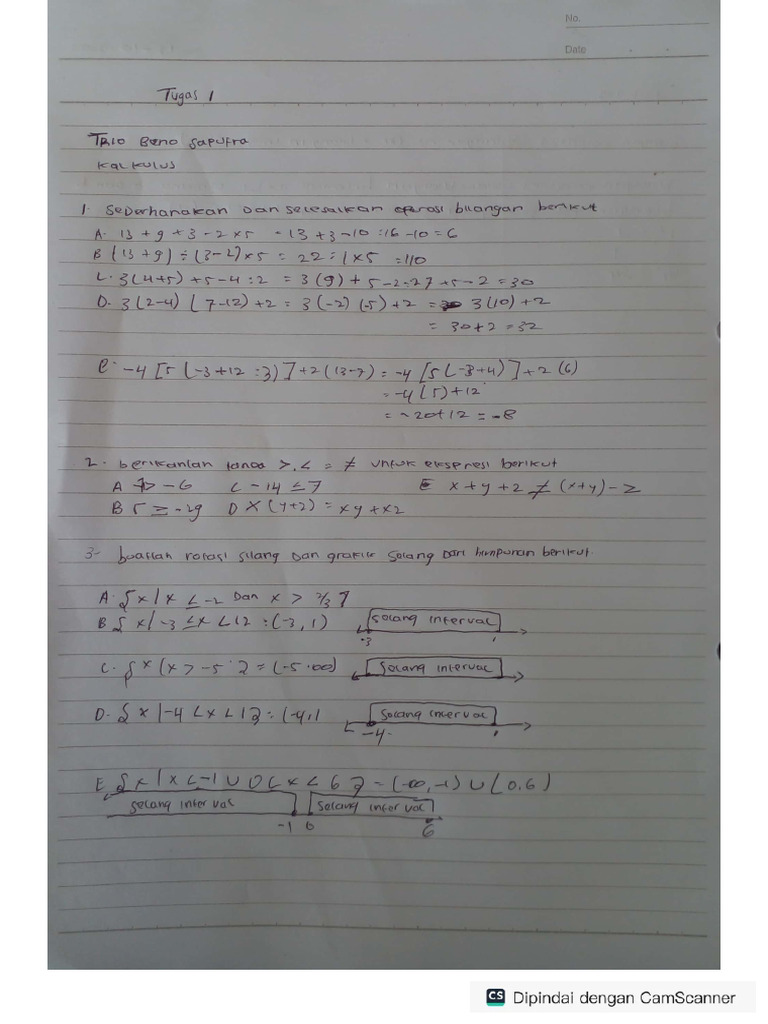 No.
Date
Tugas 1
Trio Beno Saputra
Kalkulus
1. Sederhanakan Dan selesaikan operasi bilangan berikut
A. 13 + 9 + 3 - 2 x 5 = 13 + 3 - 10 : 16 - 10 = 6
B (13 + 9) ÷ (3-2) x 5 = 22 : 1 x 5 = 110
C. 3(4+5) + 5-4 : 2 = 3(9) + 5-2 = 27 + 5 - 2 = 30
D. 3(2-4) (7-12) + 2 = 3(-2) (-5) + 2 = 3(10) + 2
= 30 + 2 = 32
e. -4 [5 (-3 + 12 : 3)] + 2 (13-7) = -4 [5 (-3+4)] + 2 (6)
= -4 (5) + 12
= -20 + 12 = -8
2. berikanlan tanda >, < = ≠ untuk ekspresi berikut
A 7 > -6 C -14 ≤ 7 E x + y + 2 ≠ (x+y) - z
B 5 ≥ -29 D x (y+2) = xy + x2
3- buatlah notasi silang Dan grafik Selang Dari himpunan berikut.
A. {x | x ≤ -2 Dan x > 2/3 }
B { x | -3 ≤ x < 12 : (-3, 1) selang interval
-3 1
C. { x (x > -5 } = (-5.∞) Selang interval
D. { x | -4 < x < 1 } = (-4, 1 Selang interval
-4 1
E { x | x < -1 ∪ 0 < x < 6 } = (-∞, -1) ∪ (0,6)
selang interval Selang interval
-1 0 6
CS Dipindai dengan CamScanner